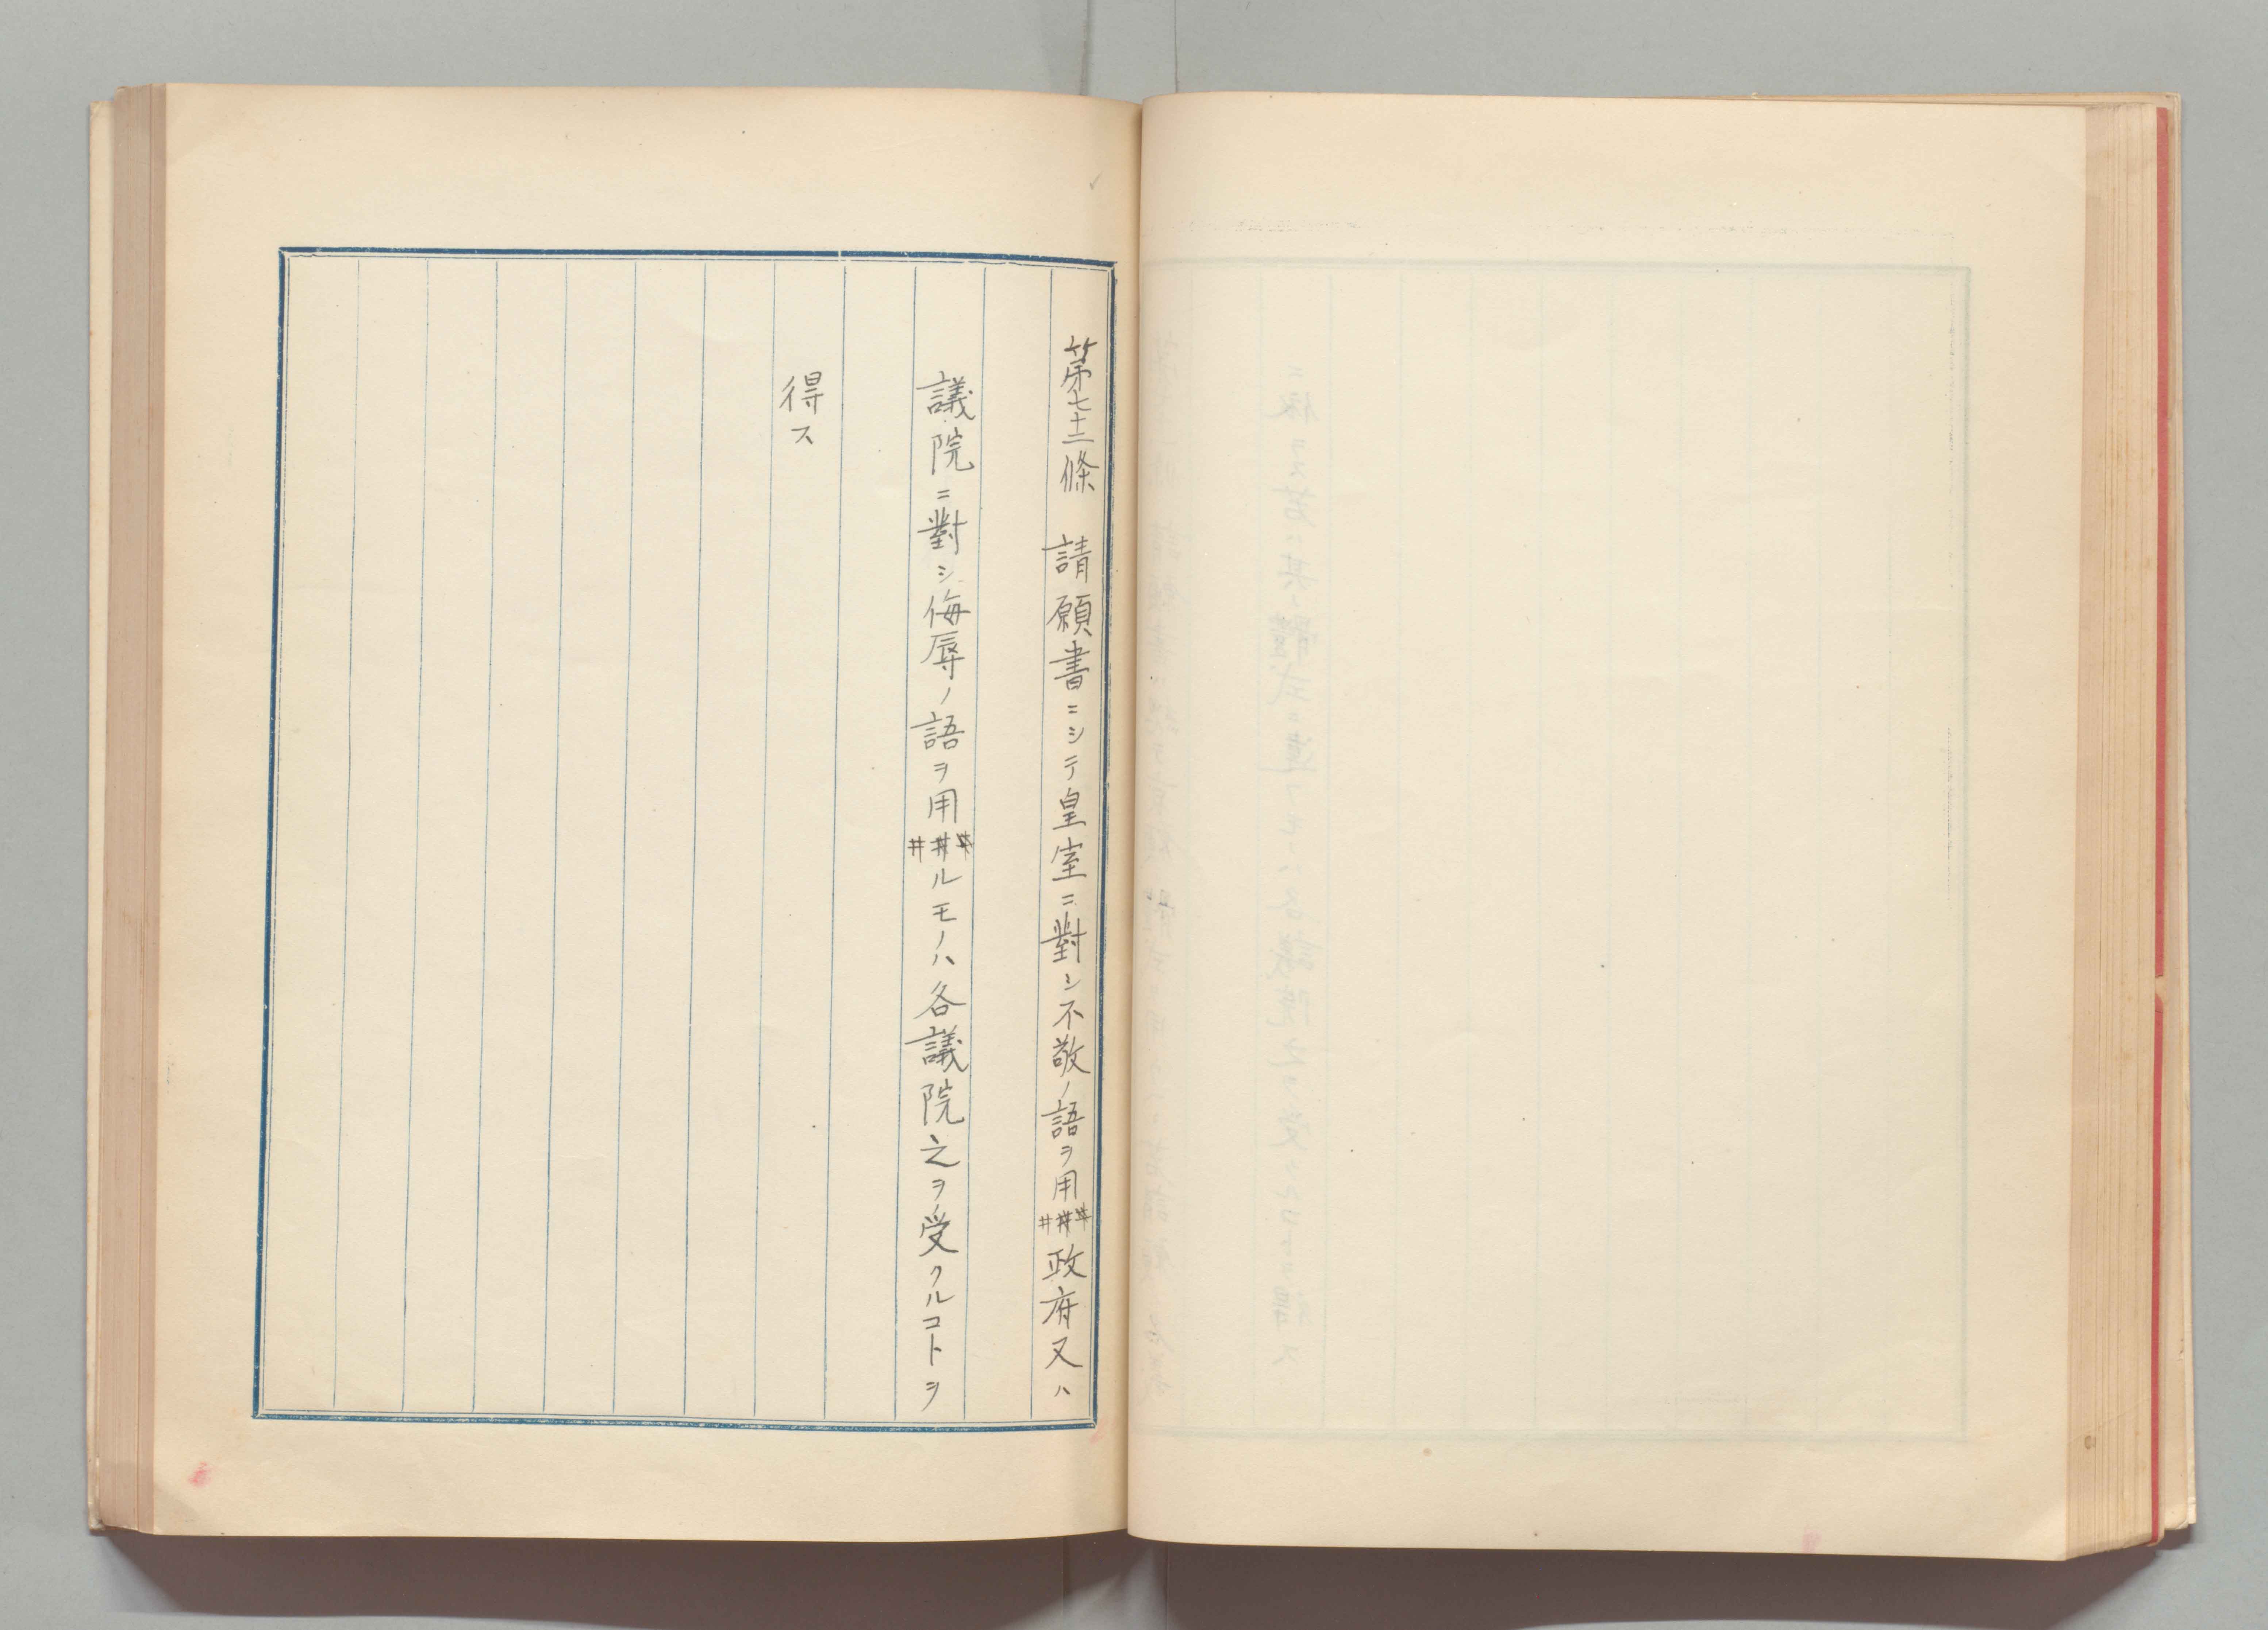 第七十三條　請願書ニシテ皇室ニ對シ不敬ノ語ヲ用ヰ政府又ハ
議院ニ對シ侮辱ノ語ヲ用ヰルモノハ各議院之ヲ受クルコトヲ
得ス